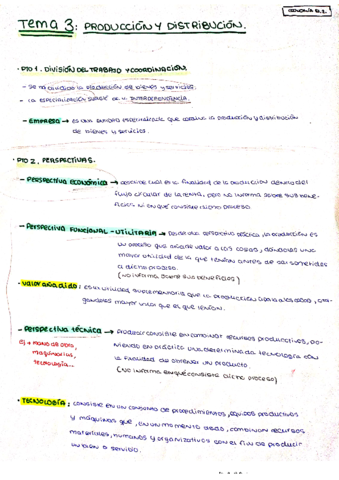 ECONOMÍA
Tema 3: PRODUCCIÓN Y DISTRIBUCIÓN.
· PTO 1. DIVISIÓN DEL TRABAJO Y COORDINACIÓN.
- Se ha dividido la producción de bienes y servicios.
- La especialización surge de la INTERDEPENDENCIA.
- EMPRESA → es una entidad especializada que coordina la producción y distribución
de bienes y servicios.
· PTO 2. PERSPECTIVAS.
- PERSPECTIVA ECONÓMICA → describe cual es la finalidad de la producción dentro del
flujo circular de la renta, pero no informa sobre sus bene-
ficios ni en qué consiste dicho proceso.
- PERSPECTIVA FUNCIONAL - UTILITARIA → Desde una perspectiva la producción es
un proceso que añade valor a las cosas, dándoles una
mayor utilidad de la que tenían antes de ser sometidas
a dicho proceso.
(No informa sobre sus beneficios)
· VALOR AÑADIDO: es la utilidad suplementaria que la producción da a las cosas, otor-
gándoles mayor valor que el que tenían.
- PERSPECTIVA TÉCNICA → Producir consiste en combinar recursos productivos, po-
niendo en práctica una determinada tecnología con
la finalidad de obtener un producto.
(No informa en qué consiste dicho proceso)
Ej → mano de obra,
maquinarias,
tecnología...
· TECNOLOGÍA: consiste en un conjunto de procedimientos, equipos productivos
y máquinas que, en un momento dado, combinan recursos
materiales, humanos y organizativos con el fin de producir
un bien o servicio.